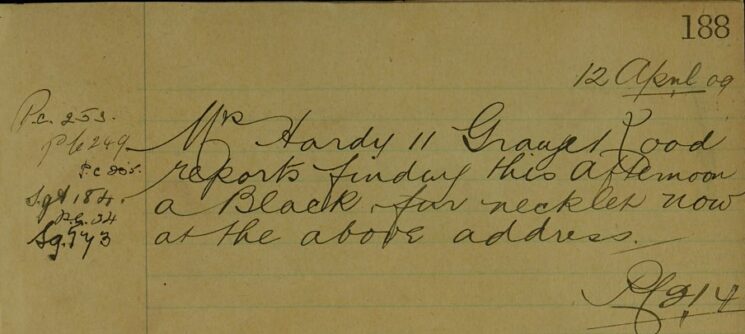 188
12 April 09
P.c. 253.
Pc 249
Pc 205.
Sgt 184.
P.C. 24
Sg. 143
Mrs Hardy 11 Grange Road
reports finding this afternoon
a Black fur necklet now
at the above address.
PC 214